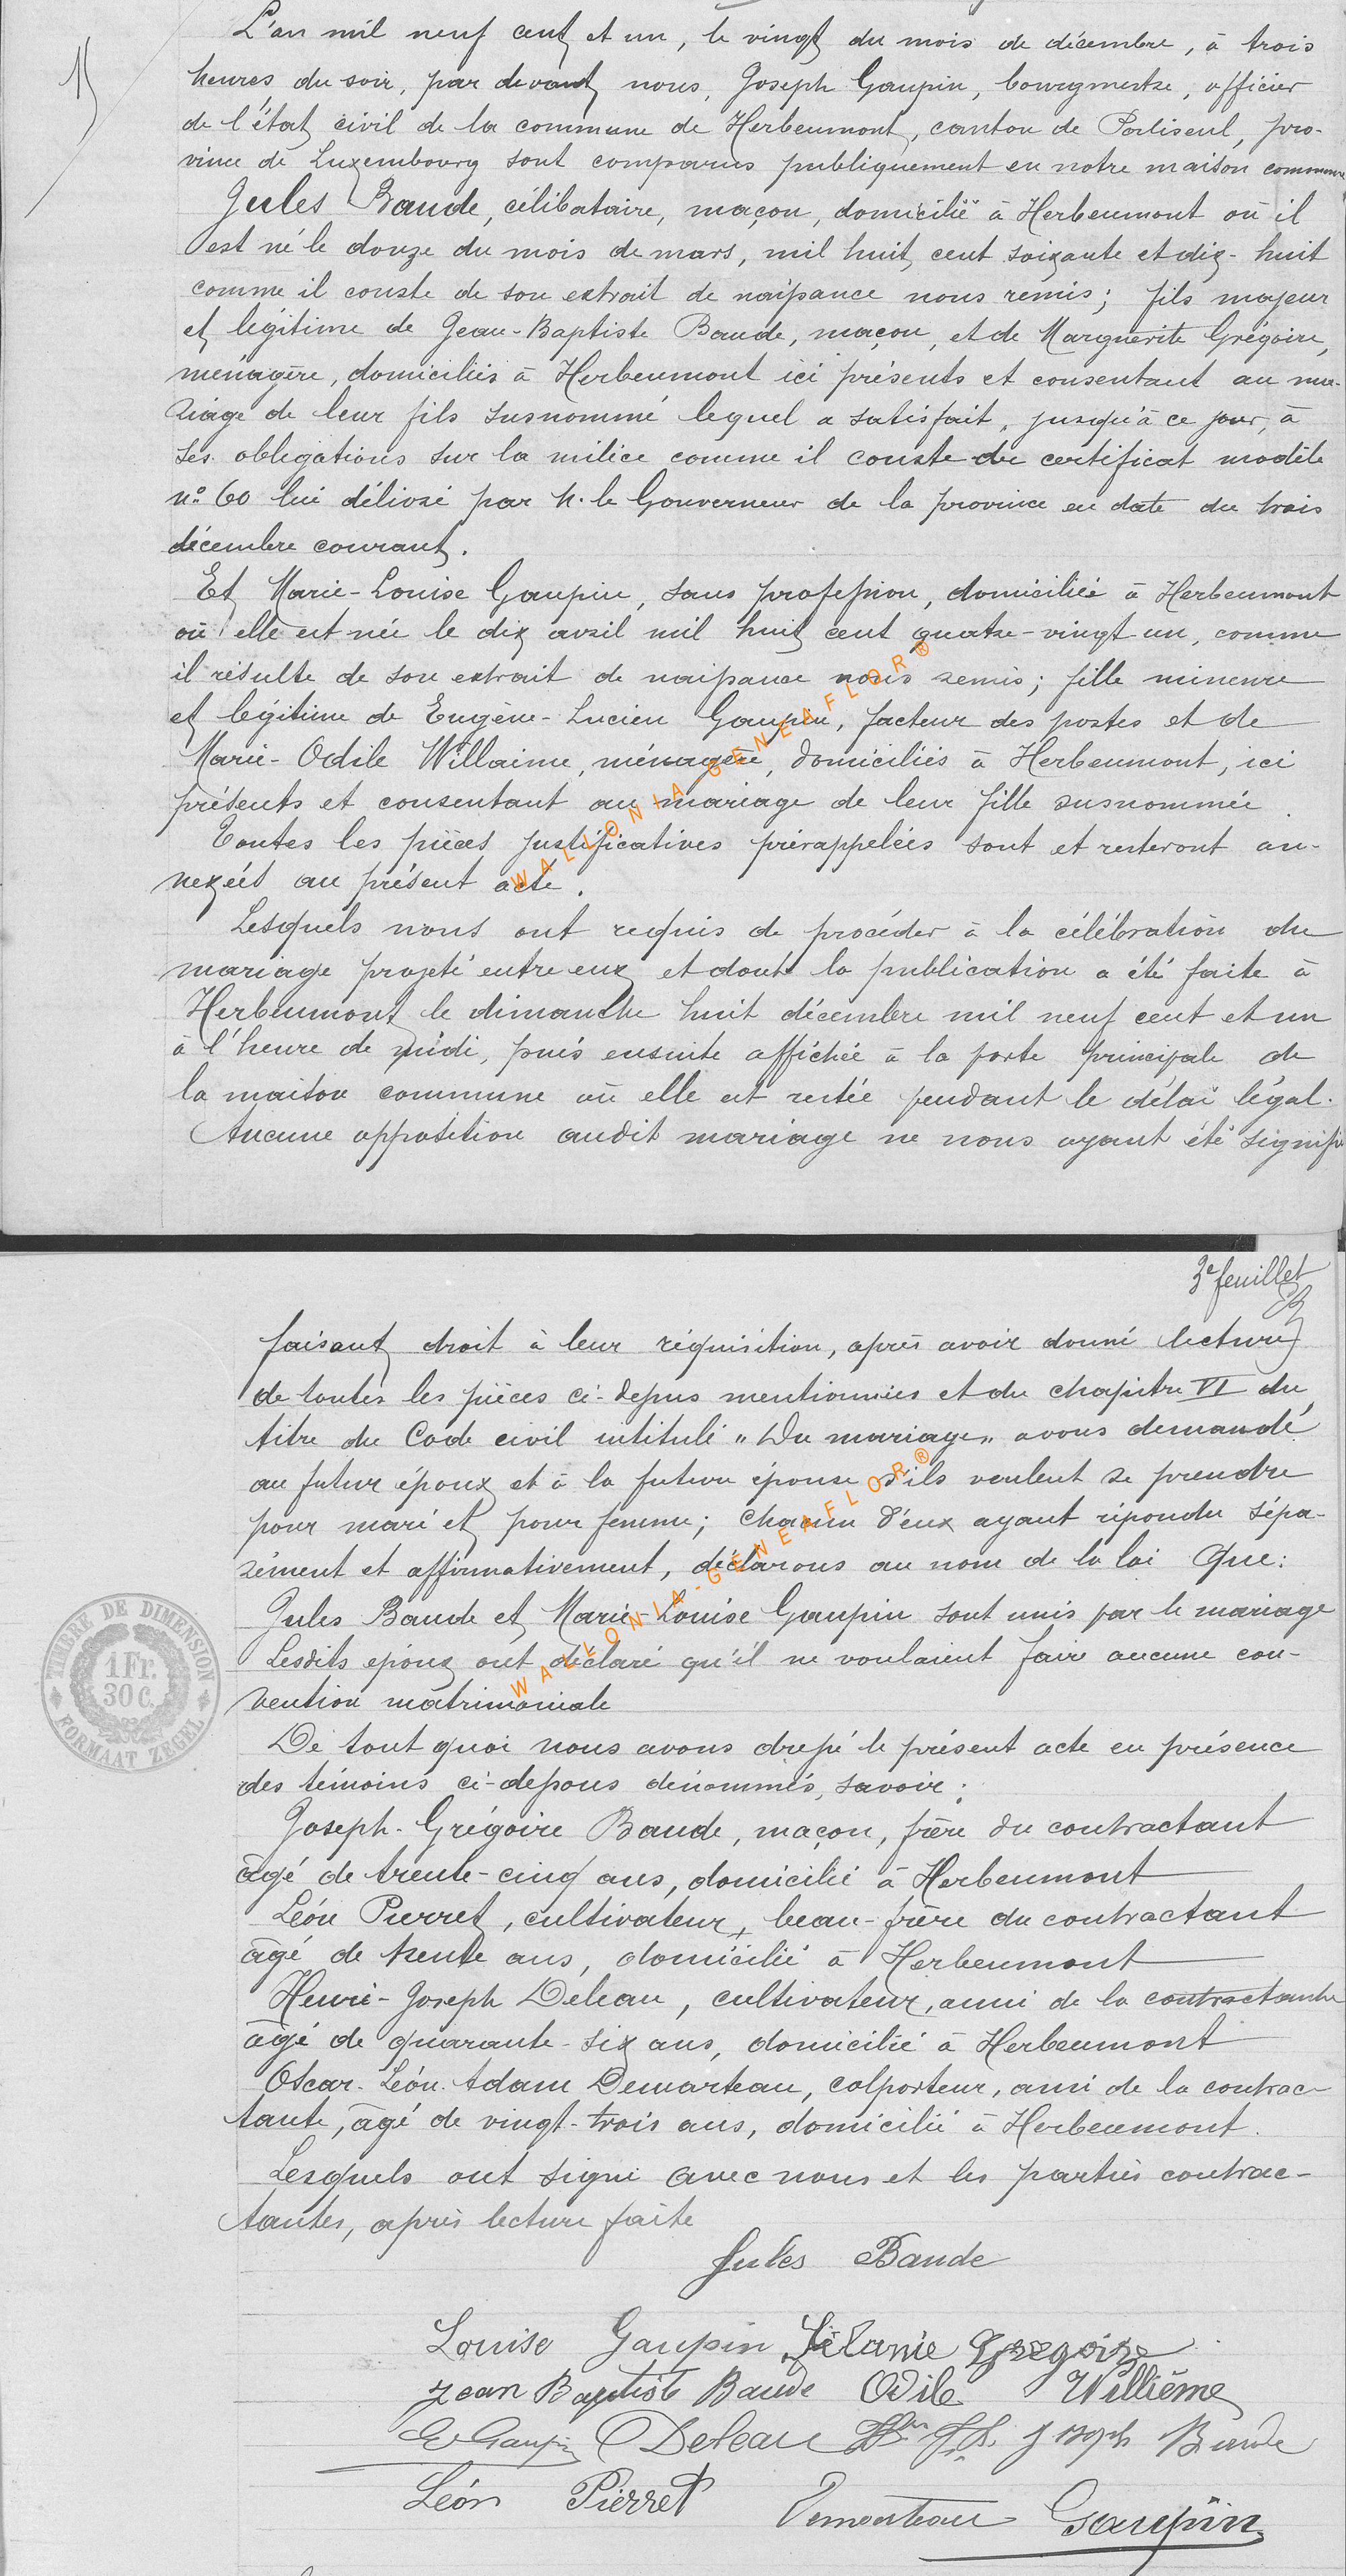 L'an mil neuf cent et un, le vingt du mois de décembre, à trois
heures du soir, par devant nous, Joseph Gaupin, bourgmestre, officier
de l'état civil de la commune de Herbeumont, canton de Paliseul, pro-
vince de Luxembourg sont comparus publiquement en notre maison commune
Jules Baude, célibataire, maçon, domicilié à Herbeumont où il
est né le douze du mois de mars, mil huit cent soixante et dix-huit
comme il conste de son extrait de naissance nous remis; fils majeur
et légitime de Jean-Baptiste Baude, maçon, et de Marguerite Grégoire,
ménagère, domiciliés à Herbeumont ici présents et consentant au ma-
riage de leur fils susnommé lequel a satisfait, jusqu'à ce jour, à
ses obligations sur la milice comme il conste du certificat modèle
n° 60 lui délivré par M. le Gouverneur de la province en date du trois
décembre courant.
Et Marie-Louise Gaupin, sans profession, domiciliée à Herbeumont
où elle est née le dix avril mil huit cent quatre-vingt-un, comme
il résulte de son extrait de naissance nous remis; fille mineure
et légitime de Eugène-Lucien Gaupin, facteur des postes et de
Marie-Odile Willaime, ménagère, domiciliés à Herbeumont, ici
présents et consentant au mariage de leur fille susnommée.
Toutes les pièces justificatives prérappelées sont et resteront an-
nexées au présent acte.
WALLONIA-GENEAFLOR®
Lesquels nous ont requis de procéder à la célébration du
mariage projeté entre eux et dont la publication a été faite à
Herbeumont le dimanche huit décembre mil neuf cent et un
à l'heure de midi, puis ensuite affichée à la porte principale de
la maison commune où elle est restée pendant le délai légal.
Aucune opposition audit mariage ne nous ayant été signifi
3e feuillet
faisant droit à leur réquisition, après avoir donné lecture
de toutes les pièces ci-dessus mentionnées et du chapitre VI du
titre du Code civil intitulé "Du mariage" avons demandé
au futur époux et à la future épouse s'ils veulent se prendre
pour mari et pour femme; chacun d'eux ayant répondu sépa-
rément et affirmativement, déclarons au nom de la loi que:
Jules Baude et Marie-Louise Gaupin sont unis par le mariage
Lesdits époux ont déclaré qu'il ne voulaient faire aucune con-
vention matrimoniale
WALLONIA-GENEAFLOR®
TIMBRE DE DIMENSION
1 Fr.
30 C.
FORMAAT ZEGEL
De tout quoi nous avons dressé le présent acte en présence
des témoins ci-dessous dénommés, savoir:
Joseph-Grégoire Baude, maçon, frère du contractant
âgé de trente-cinq ans, domicilié à Herbeumont
Léon Pierret, cultivateur, beau-frère du contractant
âgé de trente ans, domicilié à Herbeumont
Henri-Joseph Deleau, cultivateur, ami de la contractante
âgé de quarante-six ans, domicilié à Herbeumont
Oscar-Léon-Adam Demarteau, colporteur, ami de la contrac-
tante, âgé de vingt-trois ans, domicilié à Herbeumont.
Lesquels ont signé avec nous et les parties contrac-
tantes, après lecture faite
Jules Baude
Louise Gaupin Grégoire
Jean Baptiste Baude Odile Willième
E Gaupin Deleau Hri Jh Joseph Baude
Léon Pierret Demarteau Gaupin